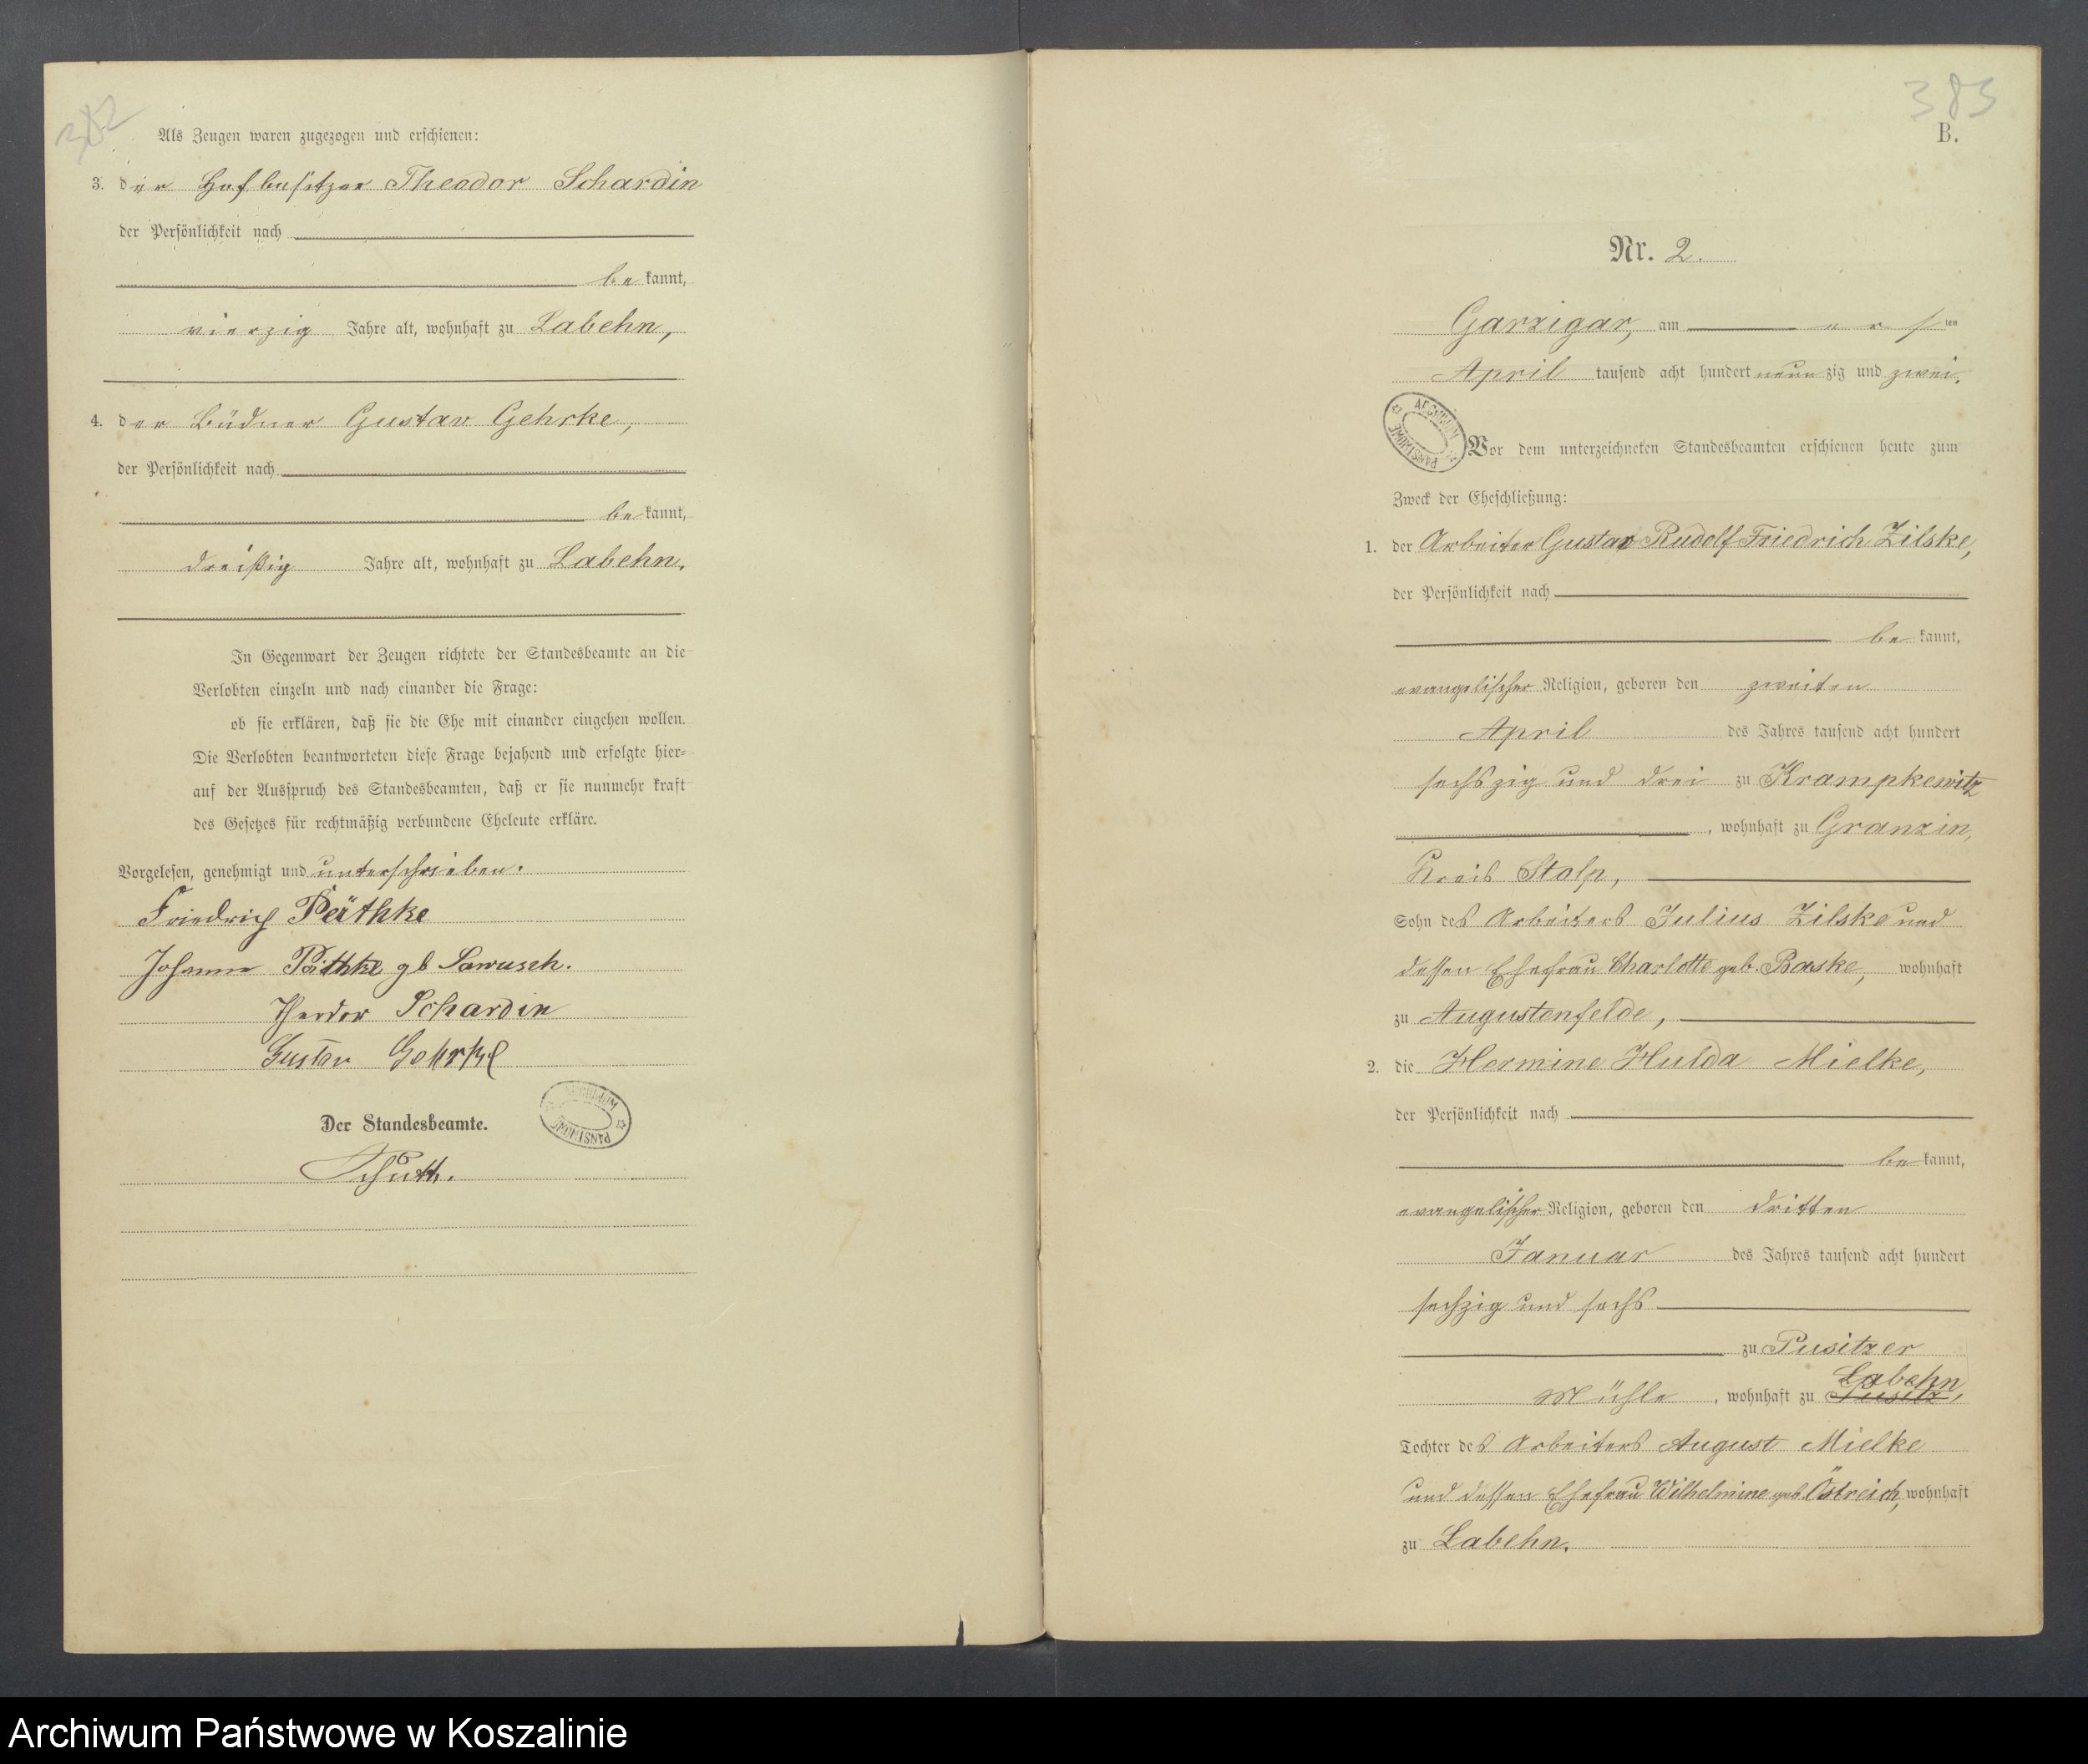 382
Als Zeugen waren zugezogen und erschienen:
3. der Hofbesitzer Theodor Schardin
der Persönlichkeit nach
be kannt,
vierzig Jahre alt, wohnhaft zu Labehn,
4. der Büdner Gustav Gehrke,
der Persönlichkeit nach
be kannt,
dreißig Jahre alt, wohnhaft zu Labehn.
In Gegenwart der Zeugen richtete der Standesbeamte an die
Verlobten einzeln und nach einander die Frage:
ob sie erklären, daß sie die Ehe mit einander eingehen wollen.
Die Verlobten beantworteten diese Frage bejahend und erfolgte hier=
auf der Ausspruch des Standesbeamten, daß er sie nunmehr kraft
des Gesetzes für rechtmäßig verbundene Eheleute erkläre.
Vorgelesen, genehmigt und unterschrieben.
Friedrich Päthke
Johanne Päthke gb Sawusch.
Theodor Schardin
Gustav Gehrke
Der Standesbeamte.
ARCHIWUM PAŃSTWOWE
383
B.
Nr. 2.
Garzigar, am ersten
April tausend acht hundert neunzig und zwei.
ARCHIWUM PAŃSTWOWE
Vor dem unterzeichneten Standesbeamten erschienen heute zum
Zweck der Eheschließung:
1. der Arbeiter Gustav Rudolf Friedrich Zilske,
der Persönlichkeit nach
be kannt,
evangelischer Religion, geboren den zweiten
April des Jahres tausend acht hundert
sechszig und drei zu Krampkewitz
, wohnhaft zu Granzin,
Kreis Stolp,
Sohn des Arbeiters Julius Zilske und
dessen Ehefrau Charlotte geb. Baske, wohnhaft
zu Augustenfelde,
2. die Hermine Hulda Mielke,
der Persönlichkeit nach
be kannt,
evangelischer Religion, geboren den dritten
Januar des Jahres tausend acht hundert
sechzig und sechs
zu Pusitzer
Labehn
Mühle , wohnhaft zu Pusitz,
Tochter des Arbeiters August Mielke
und dessen Ehefrau Wilhelmine geb. Östreich, wohnhaft
zu Labehn.
Archiwum Państwowe w Koszalinie